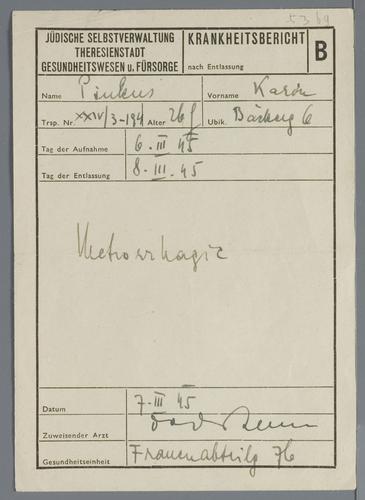 5369
JÜDISCHE SELBSTVERWALTUNG
THERESIENSTADT
GESUNDHEITSWESEN u. FÜRSORGE
KRANKHEITSBERICHT
nach Entlassung
B
Name Pinkus Vorname Karin
Trsp. Nr. XXIV/3-194 Alter 26 J Ubik. Bäckerg 6
Tag der Aufnahme 6. III 45
Tag der Entlassung 8. III. 45
Metrorrhagie
Datum 7. III 45
Zuweisender Arzt
Gesundheitseinheit Frauenabteilg